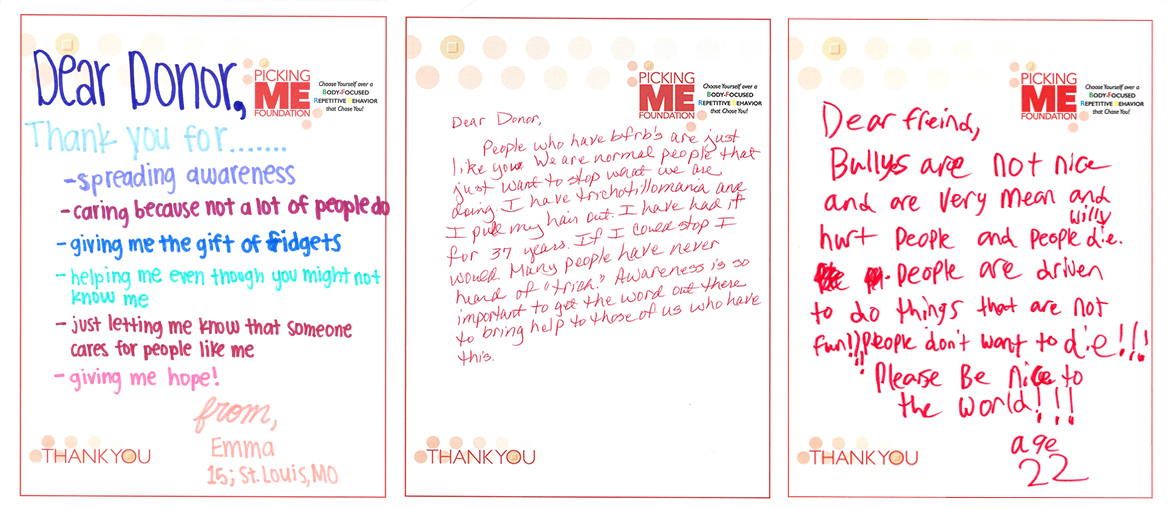 Dear Donor,
PICKING
ME
FOUNDATION
Choose Yourself over a
BODY-FOCUSED
REPETITIVE BEHAVIOR
that Chose You!
Thank you for.......
-spreading awareness
-caring because not a lot of people do
-giving me the gift of fidgets
-helping me even though you might not
know me
-just letting me know that someone
cares for people like me
-giving me hope!
from,
Emma
15; St. Louis, MO
THANK YOU
PICKING
ME
FOUNDATION
Choose Yourself over a
BODY-FOCUSED
REPETITIVE BEHAVIOR
that Chose You!
Dear Donor,
People who have bfrb's are just
like you. We are normal people that
just want to stop what we are
doing. I have trichotillomania and
I pull my hair out. I have had it
for 37 years. If I could stop I
would. Many people have never
heard of "trich." Awareness is so
important to get the word out there
to bring help to those of us who have
this.
THANK YOU
PICKING
ME
FOUNDATION
Choose Yourself over a
BODY-FOCUSED
REPETITIVE BEHAVIOR
that Chose You!
Dear freind,
Bullys are not nice
and are very mean and
hurt people and people willy die.
People are driven
to do things that are not
fun!! People don't want to die!!!
Please Be Nice to
the world!!!
age
22
THANK YOU